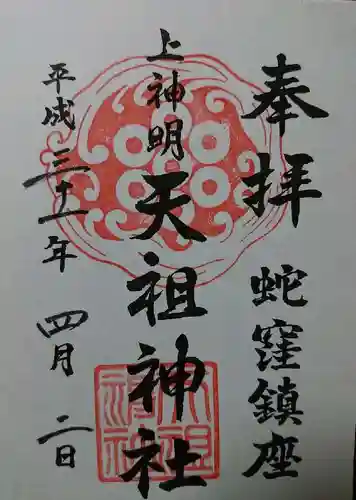 奉拝 蛇窪鎮座
上神明天祖神社
平成三十一年四月二日